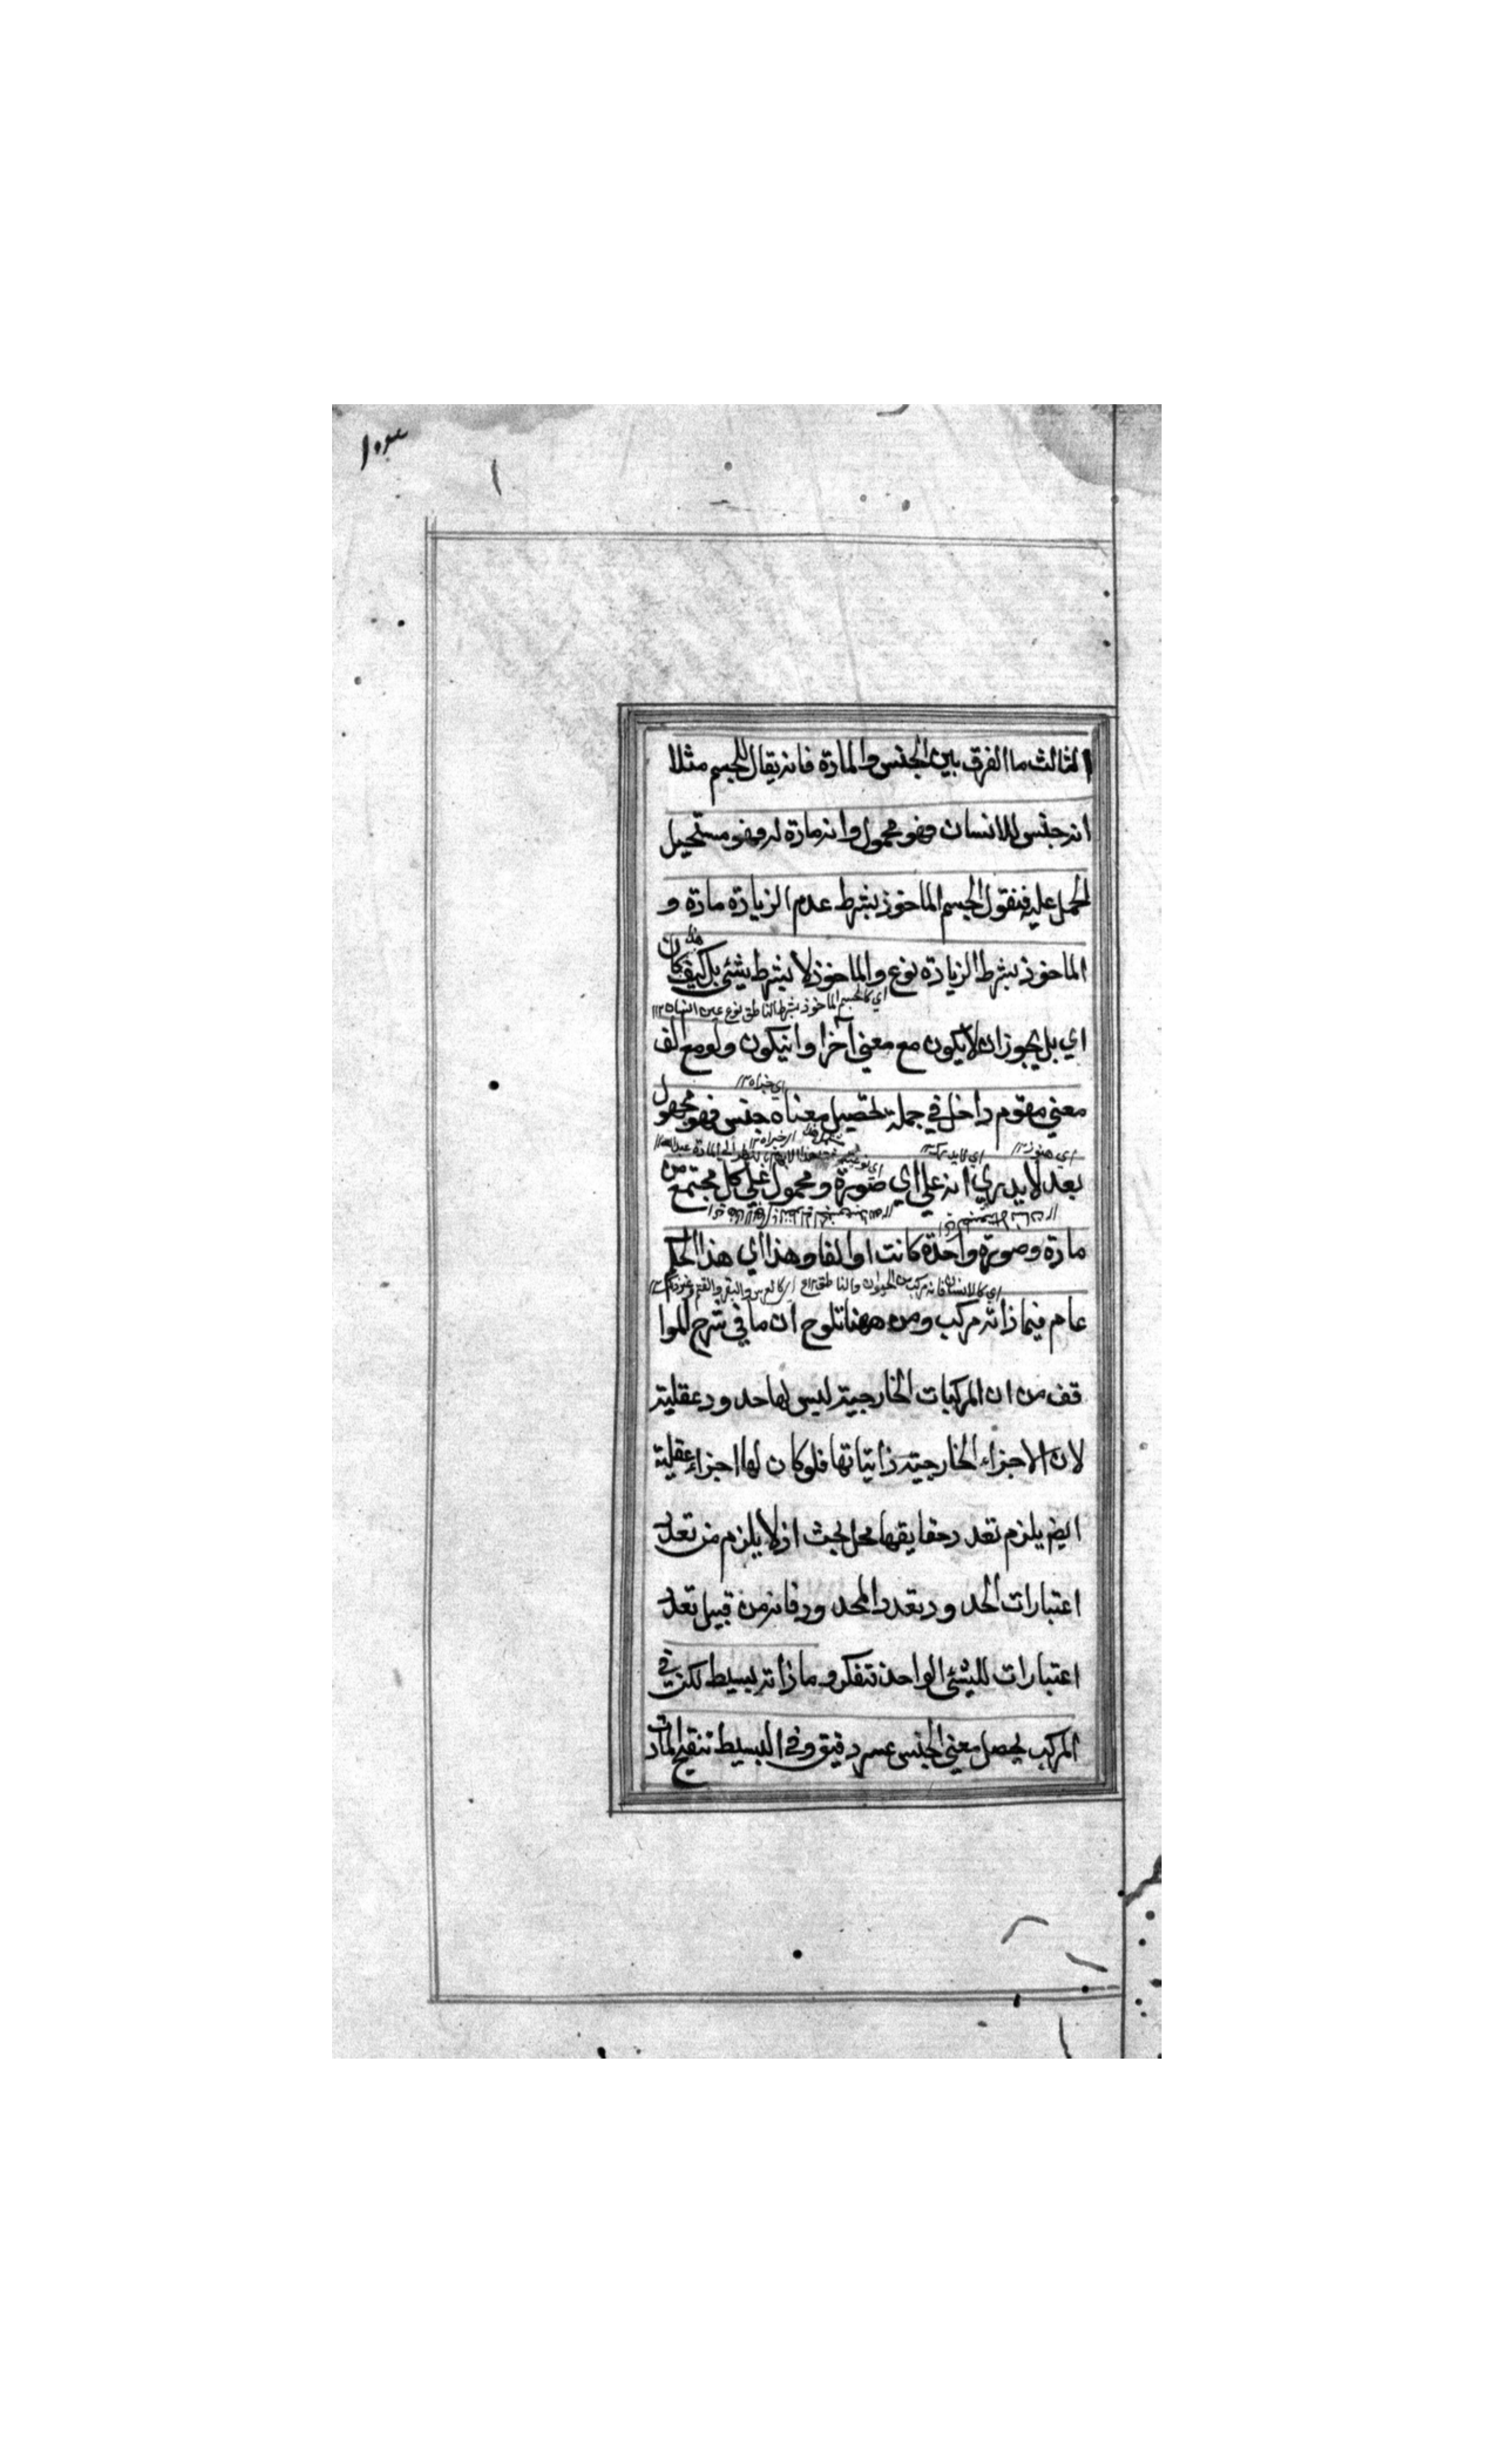 ١٠٣
الثالث ما الفرق بين الجنس والمادة فانه يقال للجسم مثلا
انه جنس للانسان فهو محمول وانه مادة له وهو مستحيل
الحمل عليه فنقول الجسم الماخوذ بشرط عدم الزيادة مادة و
الماخوذ بشرط الزيادة نوع والماخوذ لا بشرط شئي بل كيف كان
اي كالجسم الماخوذ بشرط الناطق نوع عين
اي بل يجوز ان لا يكون مع معني آخرا وانيكون ولو مع الف
معني مقوم داخل في جملة تحصيل معناه جنس فهو مجهول
بعد لا يدري انه علي اي صورة ومحمول علي كل مجتمع من
مادة وصورة واحدة كانت او الفا وهذا اي هذا الحكم
اي كالانسان فانه مركب من الحيوان والناطق
عام فيما ذاته مركب ومن ههنا تلوح ان ما في شرح الموا
قف من ان المركبات الخارجية ليس لها حدود عقلية
لان الاجزاء الخارجية ذاتياتها فلو كان لها اجزاء عقلية
ايضم يلزم تعدد حقايقها محل بحث اذ لا يلزم من تعدد
اعتبارات الحدود تعدد المحدود فانه من قبيل تعدد
اعتبارات للشئي الواحد فتفكر وما ذاته بسيط لكن في
المركب يحصل معني الجنس عسر دقيق وفي البسيط تنقيح المادة